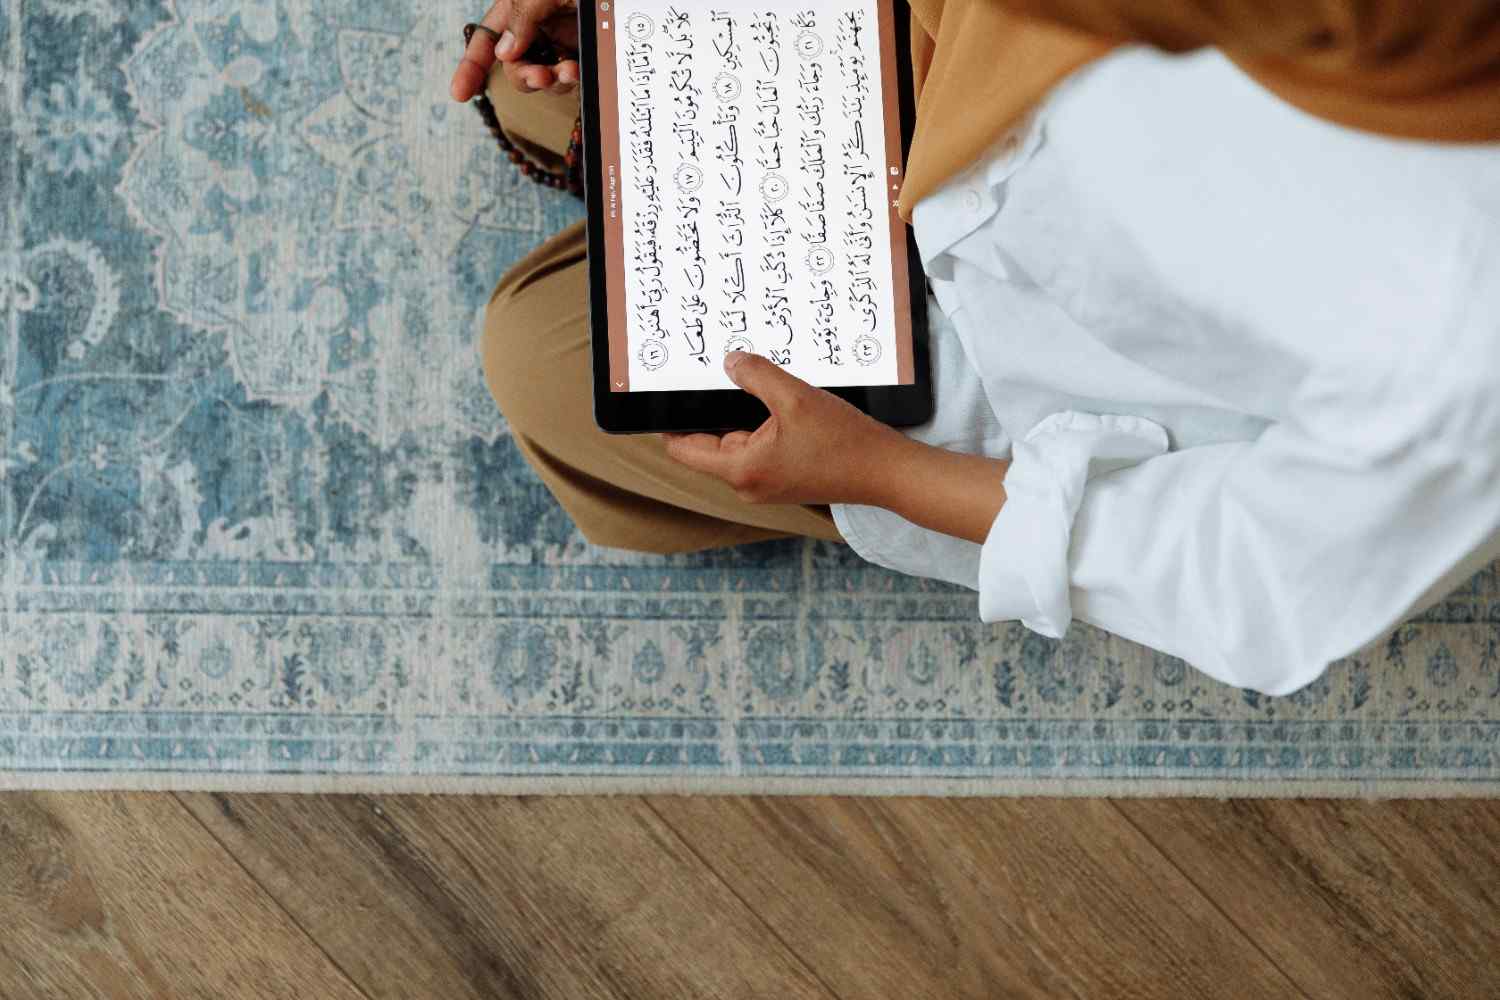 89. Al Fajr, Page 593
١٥ وَأَمَّآ إِذَا مَا ٱبْتَلَىٰهُ فَقَدَرَ عَلَيْهِ رِزْقَهُۥ فَيَقُولُ رَبِّىٓ أَهَٰنَنِ ١٦
كَلَّا ۖ بَل لَّا تُكْرِمُونَ ٱلْيَتِيمَ ١٧ وَلَا تَحَٰٓضُّونَ عَلَىٰ طَعَامِ
ٱلْمِسْكِينِ ١٨ وَتَأْكُلُونَ ٱلتُّرَاثَ أَكْلًا لَّمًّا ١٩
وَتُحِبُّونَ ٱلْمَالَ حُبًّا جَمًّا ٢٠ كَلَّآ إِذَا دُكَّتِ ٱلْأَرْضُ دَكًّا
دَكًّا ٢١ وَجَآءَ رَبُّكَ وَٱلْمَلَكُ صَفًّا صَفًّا ٢٢ وَجِا۟ىٓءَ يَوْمَئِذٍۭ
بِجَهَنَّمَ ۚ يَوْمَئِذٍ يَتَذَكَّرُ ٱلْإِنسَٰنُ وَأَنَّىٰ لَهُ ٱلذِّكْرَىٰ ٢٣